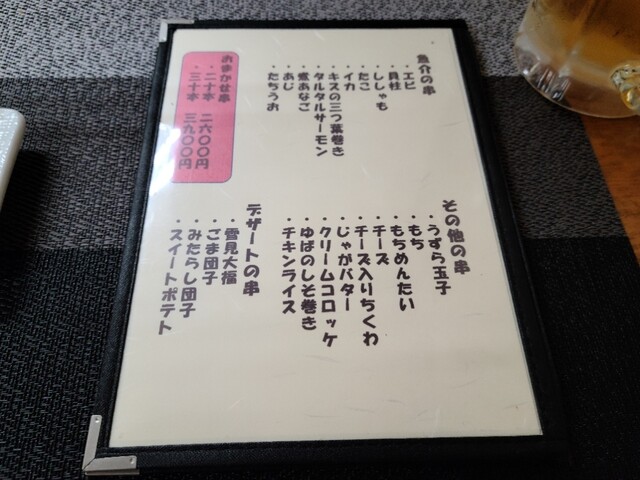 魚介の串
・エビ
・貝柱
・ししゃも
・たこ
・イカ
・キスの三つ葉巻き
・タルタルサーモン
・煮あなご
・あじ
・たちうお
おまかせ串
・二十本 二六〇〇円
・三十本 三九〇〇円
その他の串
・うずら玉子
・もち
・もちめんたい
・チーズ
・チーズ入りちくわ
・じゃがバター
・クリームコロッケ
・ゆばのしそ巻き
・チキンライス
デザートの串
・雪見大福
・ごま団子
・みたらし団子
・スイートポテト